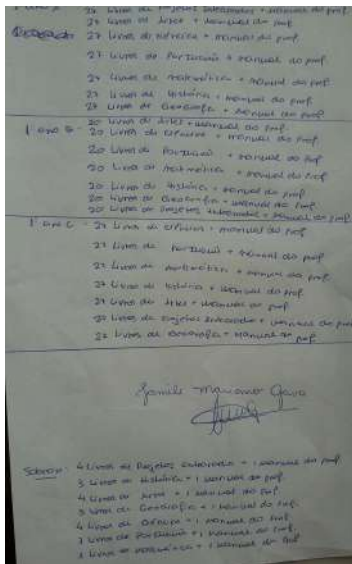 27 Livros de Projetos Integrados + manual do prof.
27 Livros de Artes + manual do prof.
27 Livros de Ciência + manual do prof.
27 Livros de Português + manual do prof.
27 Livros de matemática + manual do prof.
27 Livros de História + manual do prof.
27 Livros de Geografia + manual do prof.
20 Livros de Artes + manual do prof.
1º ano B - 20 Livros de Ciência + manual do prof.
20 Livros de Português + manual do prof
20 Livros de matemática + manual do prof
20 Livros de História + manual do prof.
20 Livros de Geografia + manual do prof.
20 Livros de Projetos Integrados + manual do prof.
1º ano C - 27 Livros de Ciência + manual do prof
27 Livros de Português + manual do prof
27 Livros de matemática + manual do prof
27 Livros de história + manual do prof.
27 Livros de Artes + manual do prof.
Livros de Projetos Integrados + manual do prof
27 Livros de Geografia + manual do prof.
Mariano
Sobrou: 4 Livros de Projetos Integrados + 1 manual do prof.
3 Livros de História + 1 manual do prof.
4 Livros de Artes + 1 manual do prof.
3 Livros de Geografia + 1 manual do prof.
4 Livros de Ciência + 1 manual do prof.
Livros de Português + 1 manual do prof.
Livros de matemática + 1 manual do prof